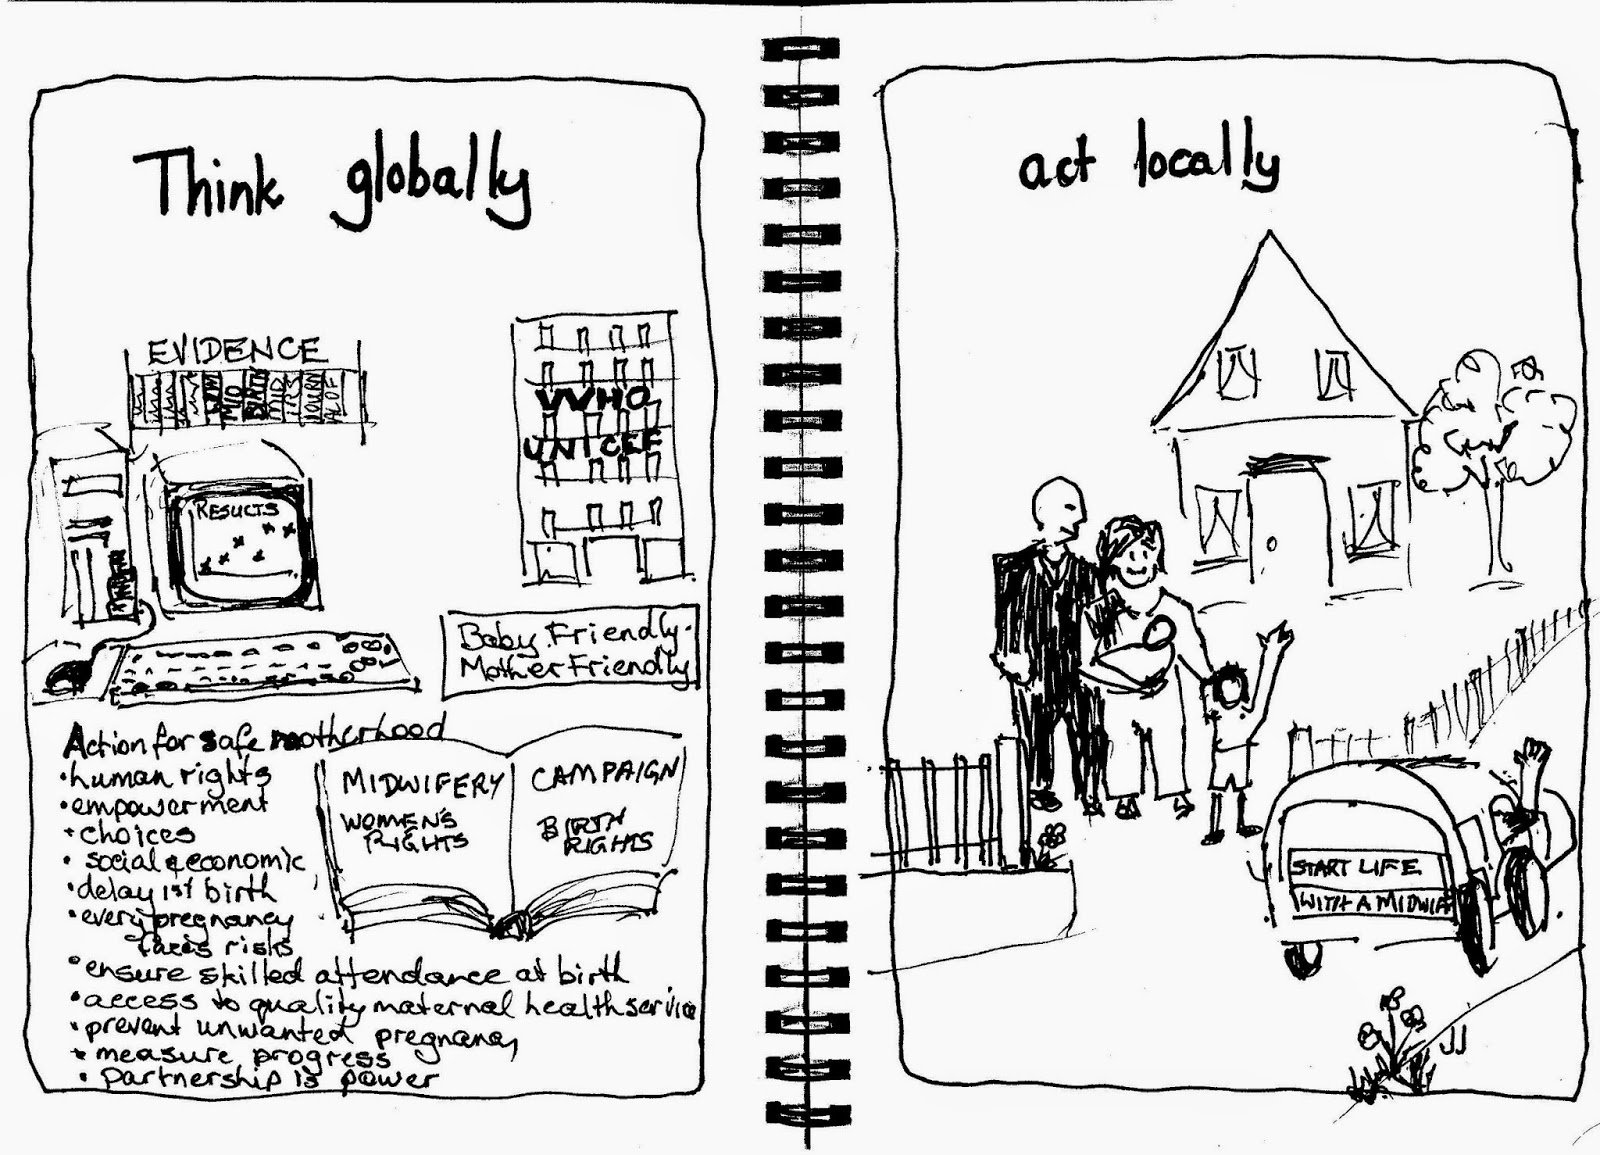 Think globally
EVIDENCE
BIRTH
MID
JOURN
AL OF
WHO
UNICEF
RESULTS
Baby Friendly-
Mother Friendly
Action for safe motherhood
• human rights
• empowerment
• choices
• social & economic
• delay 1st birth
• every pregnancy
faces risks
• ensure skilled attendance at birth
• access to quality maternal health service
• prevent unwanted pregnancy
• measure progress
• partnership is power
MIDWIFERY
WOMEN'S
RIGHTS
CAMPAIGN
BIRTH
RIGHTS
act locally
START LIFE
WITH A MIDWIF
JJ